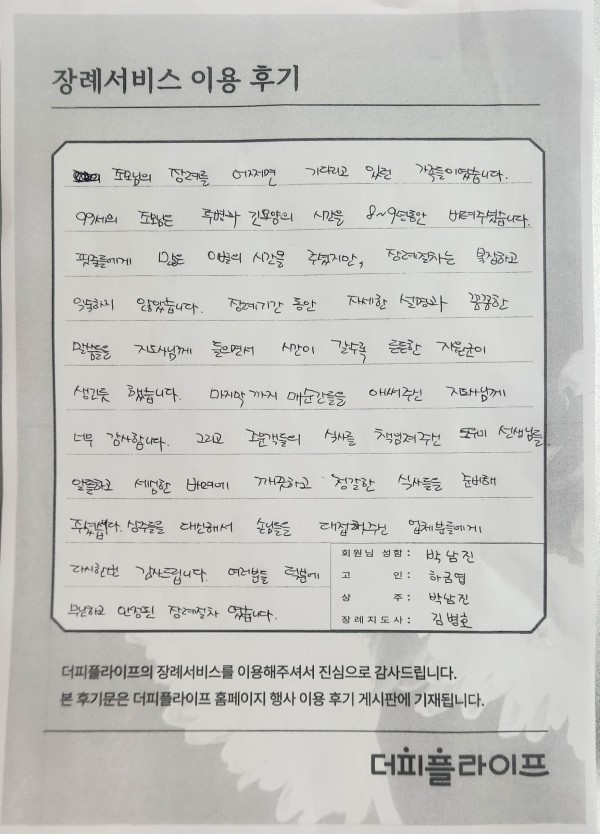 장례서비스 이용 후기
조모님의 장례를 어쩌면 기다리고 있던 가족들이었습니다.
99세의 조모님은 투병과 긴요양의 시간을 8~9년동안 버텨주셨습니다.
핏줄들에게 많은 이별의 시간을 주셨지만, 장례절차는 복잡하고
익숙하지 않았습니다. 장례기간 동안 자세한 설명과 꼼꼼한
말씀들을 지도사님께 들으면서 시간이 갈수록 든든한 지원군이
생긴듯 했습니다. 마지막까지 매순간들을 애써주신 지도사님께
너무 감사합니다. 그리고 조문객들의 식사를 책임져주신 도우미 선생님들
알뜰하고 세심한 배려에 깨끗하고 정갈한 식사들을 준비해
주셨습니다. 상주들을 대신해서 손님들을 대접해주신 업체분들에게
다시한번 감사드립니다. 여러분들 덕분에
무난하고 안정된 장례절차 였습니다.
회원님 성함: 박남진
고 인: 하금엽
상 주: 박남진
장례지도사: 김병호
더피플라이프의 장례서비스를 이용해주셔서 진심으로 감사드립니다.
본 후기문은 더피플라이프 홈페이지 행사 이용 후기 게시판에 기재됩니다.
더피플라이프